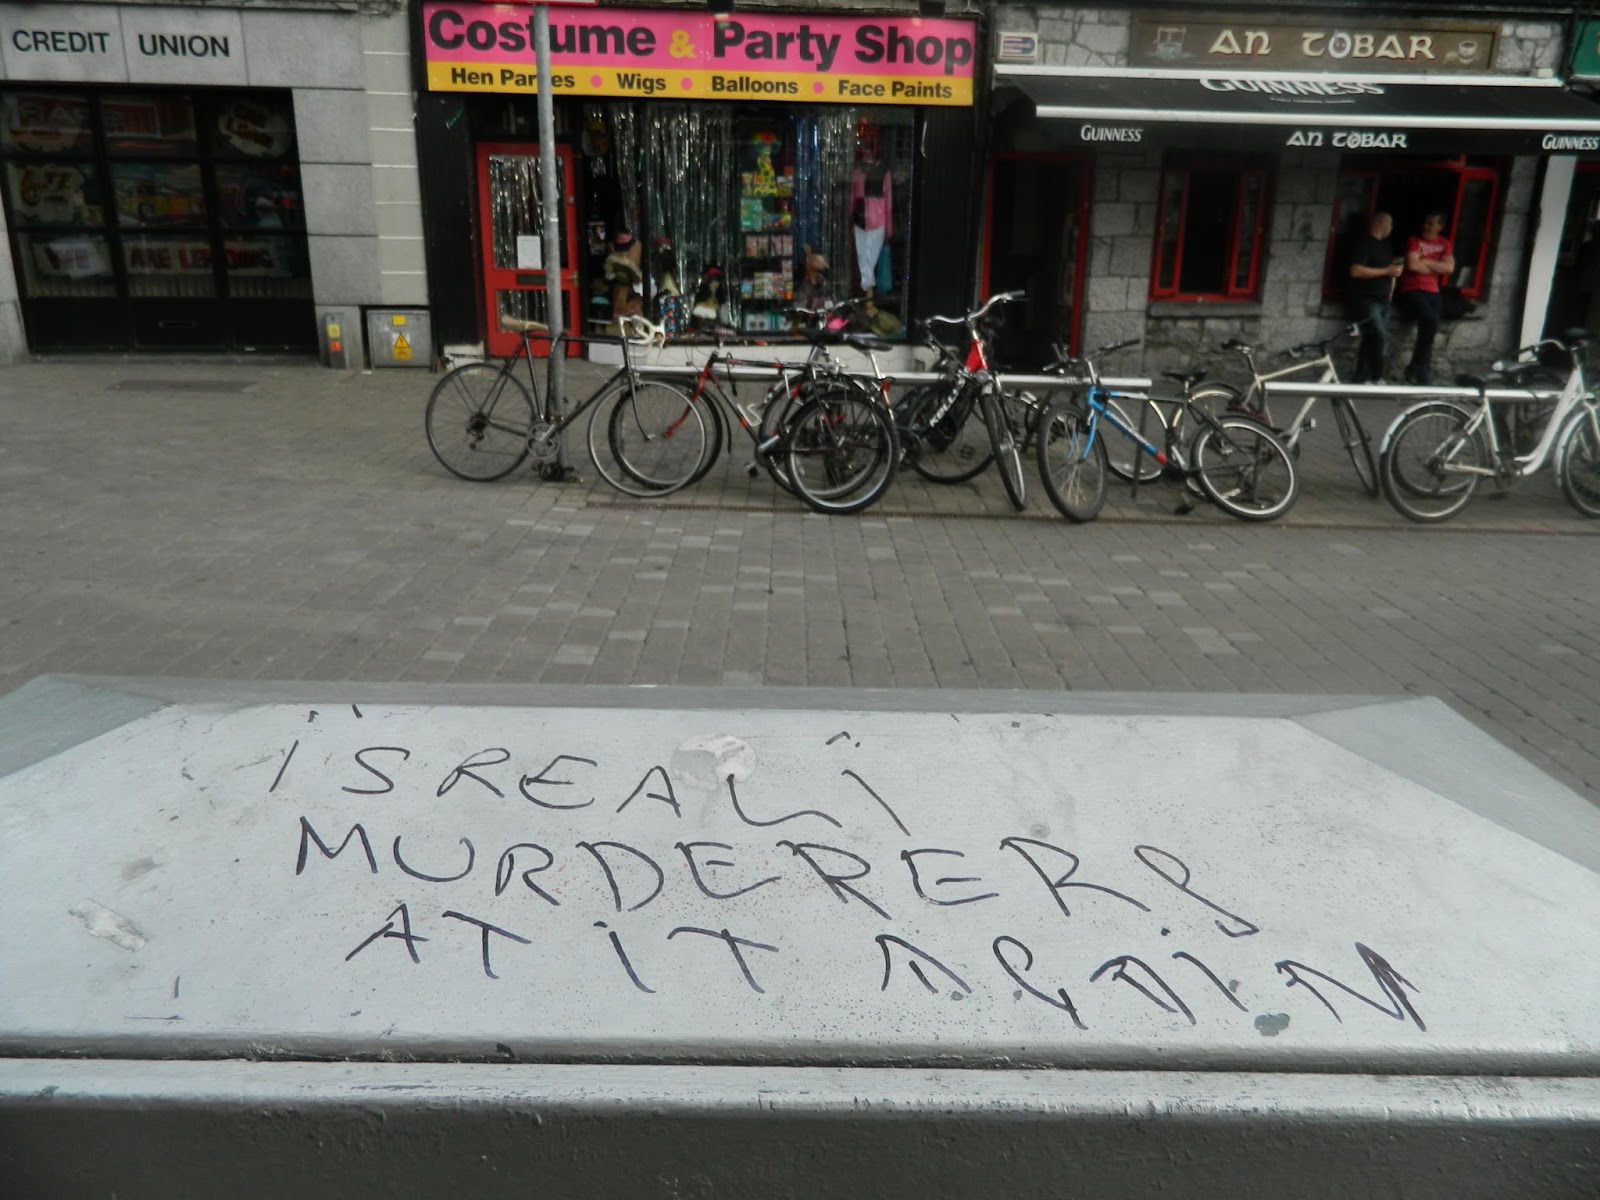 CREDIT UNION
Costume & Party Shop
Hen Parties • Wigs • Balloons • Face Paints
AN TOBAR
GUINNESS
GUINNESS AN TOBAR GUINNESS
WE ARE LENDING
KELLYS
ISREALI
MURDERERS
AT IT AGAIN